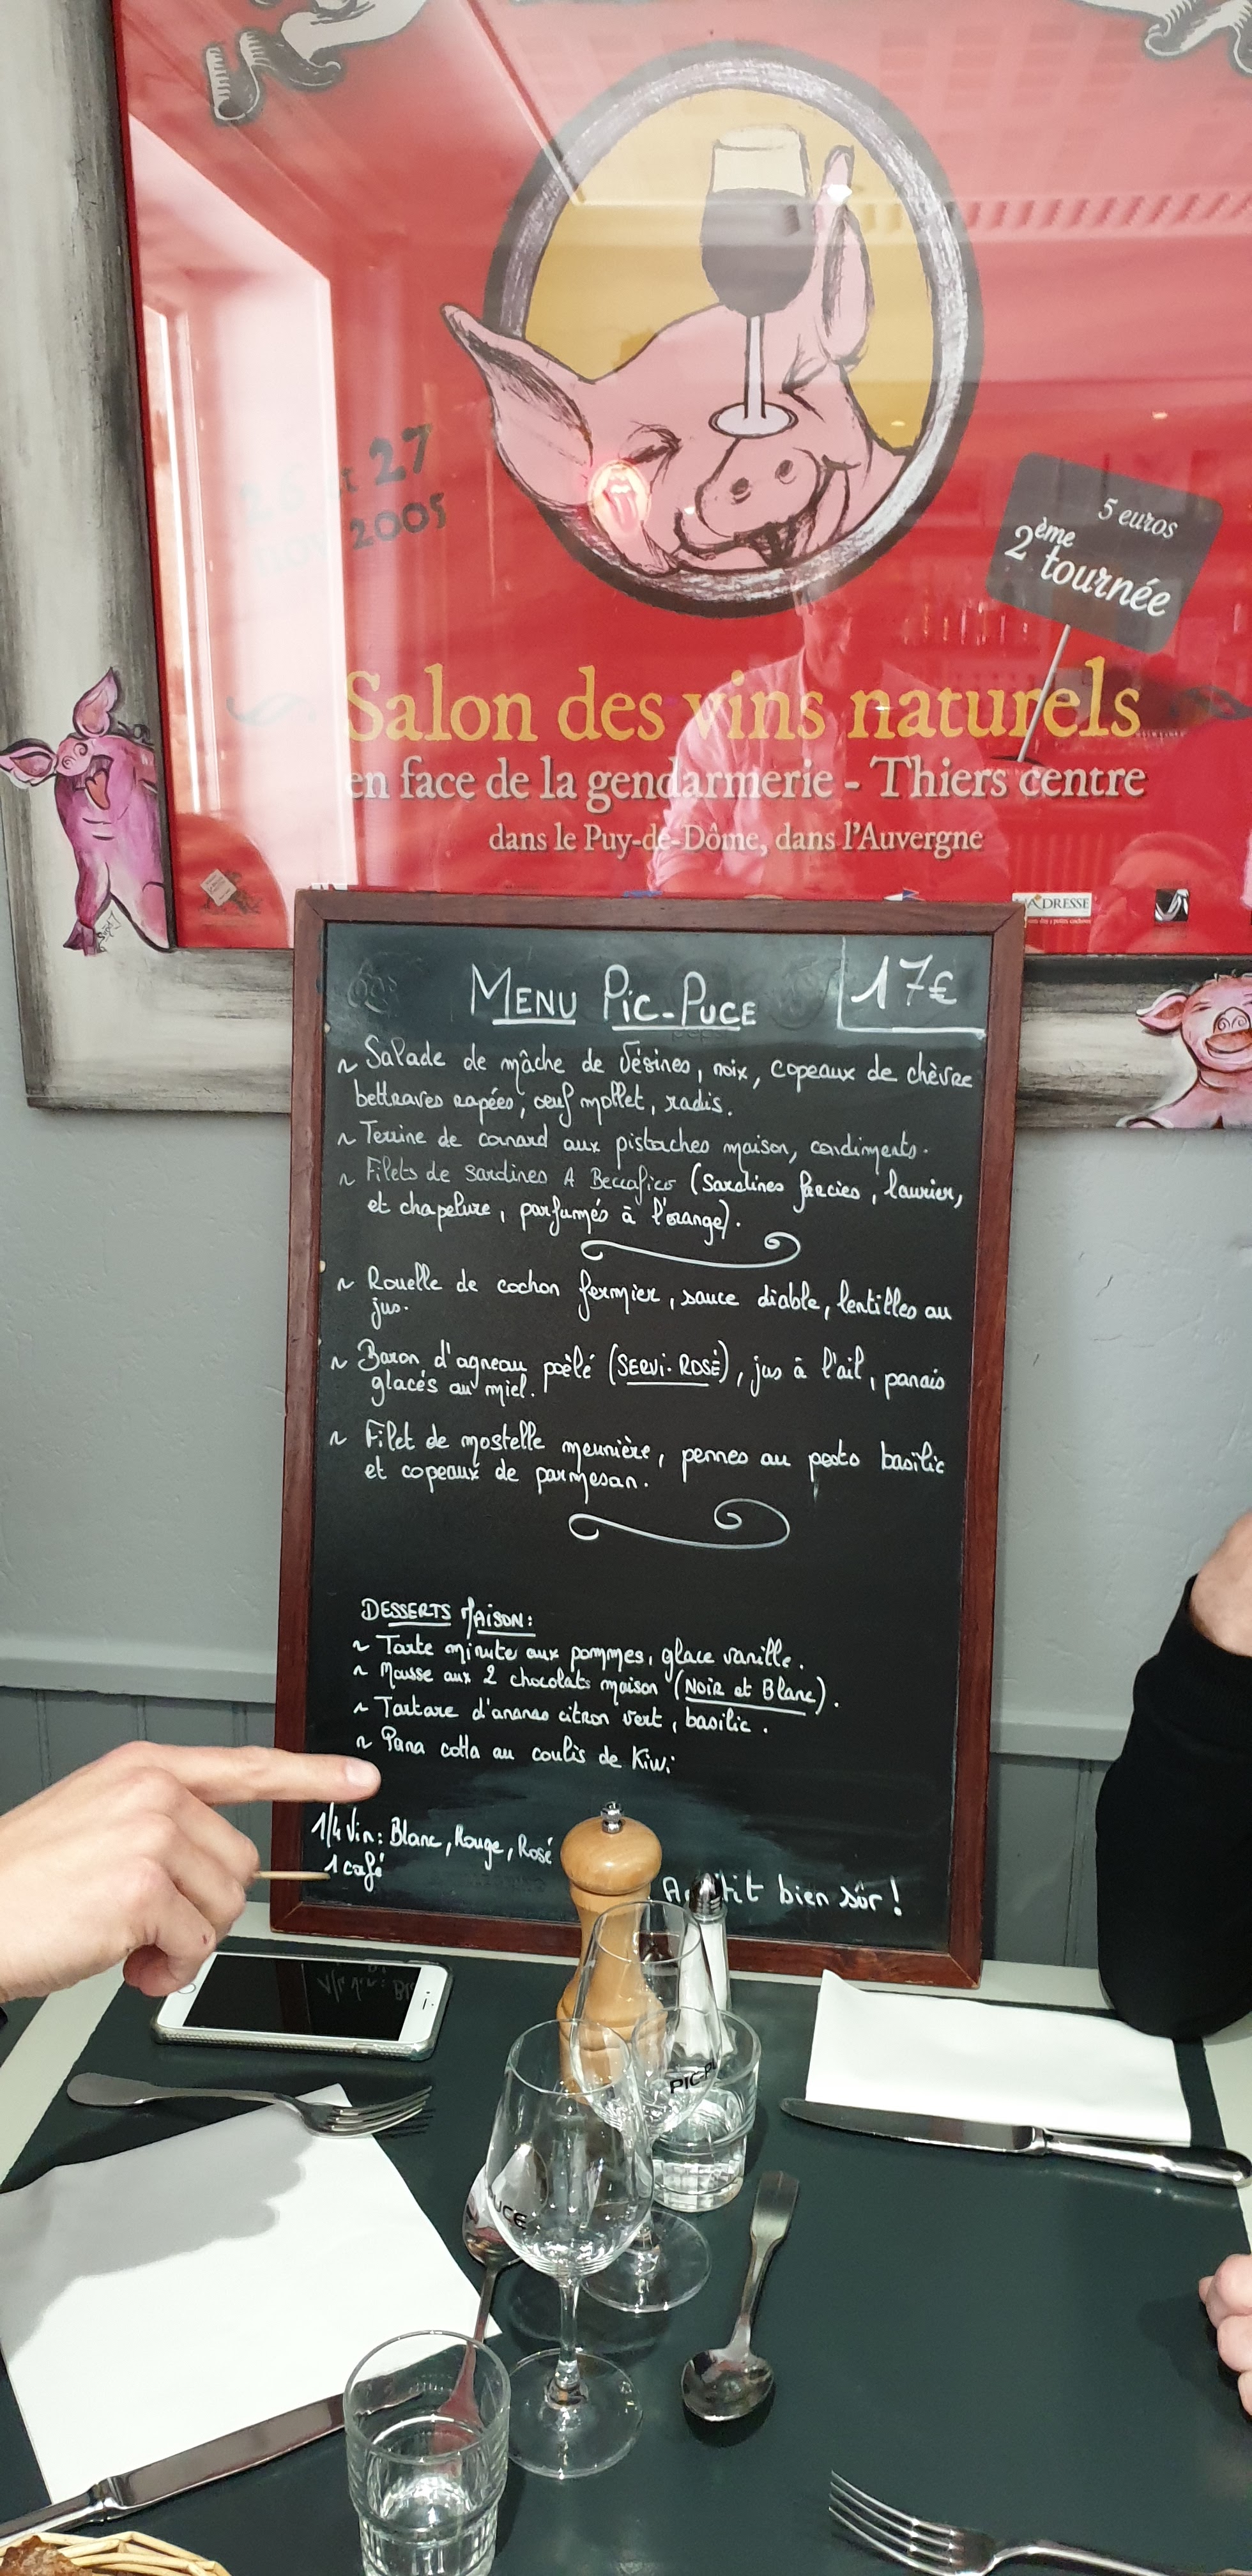 26 et 27
nov 2005
5 euros
2ème
tournée
Salon des vins naturels
en face de la gendarmerie - Thiers centre
dans le Puy-de-Dôme, dans l'Auvergne
L'ADRESSE
MENU PIC-PUCE
17€
~ Salade de mâche de Vésines, noix, copeaux de chèvre
bettraves rapées, oeuf mollet, radis.
~ Terrine de canard aux pistaches maison, condiments.
~ Filets de Sardines A Beccafico (Sardines farcies, laurier,
et chapelure, parfumés à l'orange).
~ Rouelle de cochon fermier, sauce diable, lentilles au
jus.
~ Baron d'agneau poêlé (SERVI-ROSÉ), jus à l'ail, panais
glacés au miel.
~ Filet de mostelle meunière, pennes au pesto basilic
et copeaux de parmesan.
DESSERTS MAISON:
~ Tarte minute aux pommes, glace vanille.
~ Mousse aux 2 chocolats maison (NOIR et Blanc).
~ Tartare d'ananas citron vert, basilic.
~ Pana cotta au coulis de Kiwi
1/4 Vin: Blanc, Rouge, Rosé
1 café
bien sûr!
PIC-P
UCE